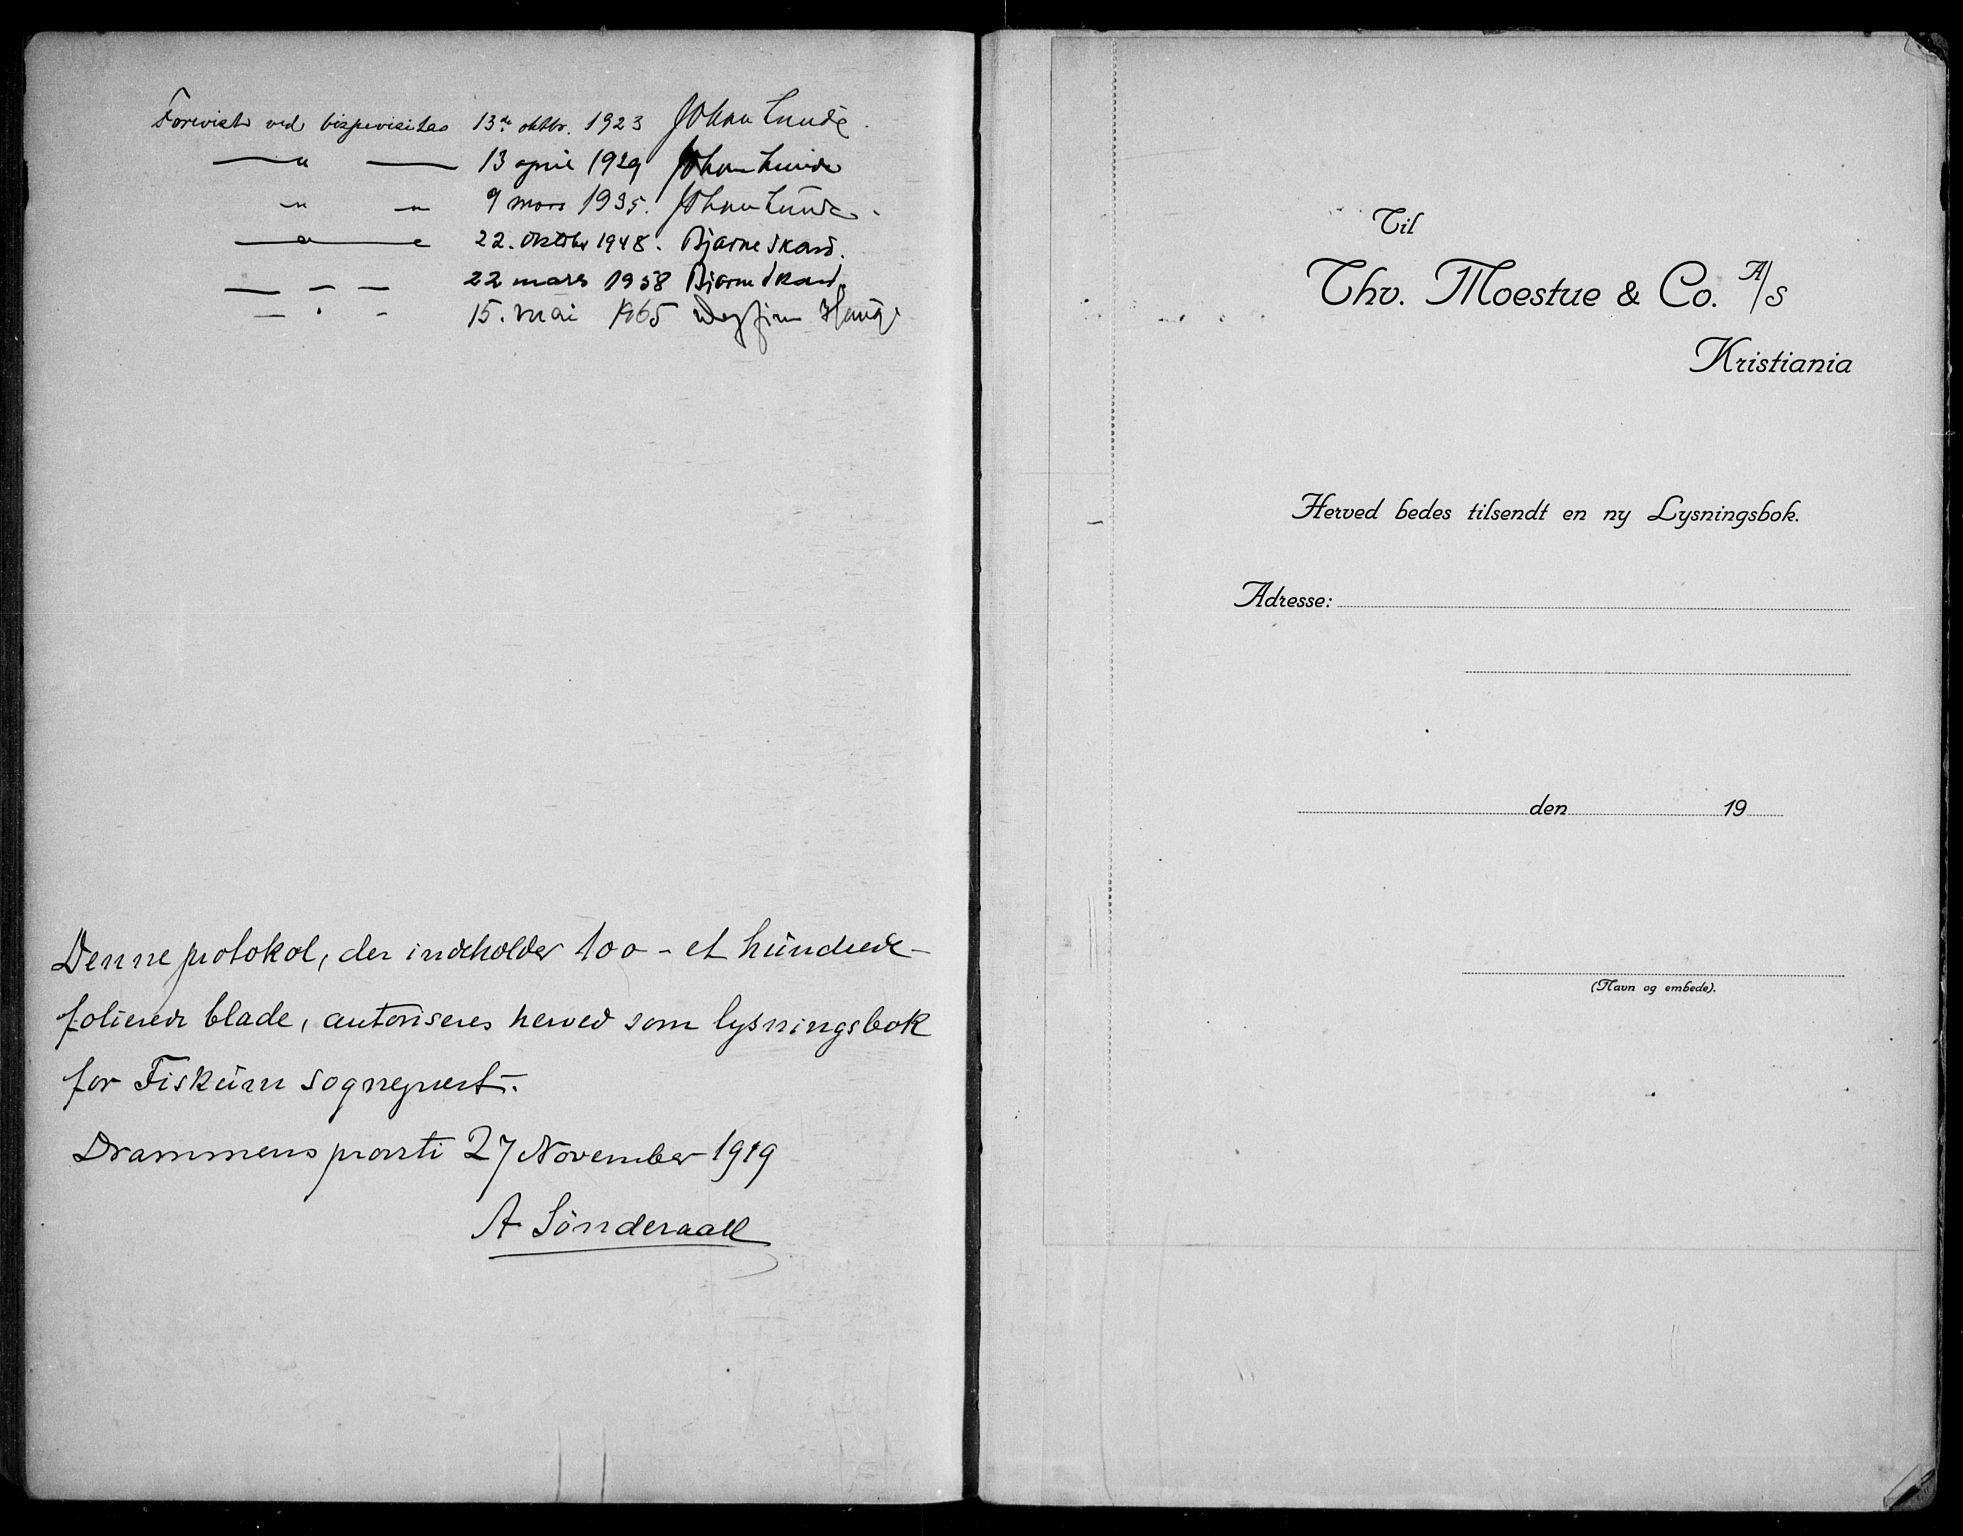 Forevist ved bispevisitas 13de oktbr. 1923 Johan Lunde.
— " — 13 april 1929 Johan Lunde
" " 9 mars 1935. Johan Lunde.
— " — " 22. oktober 1948. Bjarne Skard.
— - — 22 mars 1958 Bjarne Skard.
— " - 15. mai 1965 Dagfinn Hauge
Denne protokol, der indeholder 100 - et hundrede -
folierede blade, autoriseres herved som lysningsbok
for Fiskum sogneprest.
Drammens prosti 27 November 1919
A Sønderaall
Til
Thv. Moestue & Co. A/S
Kristiania
Herved bedes tilsendt en ny Lysningsbok.
Adresse:
den 19
(Navn og embede).